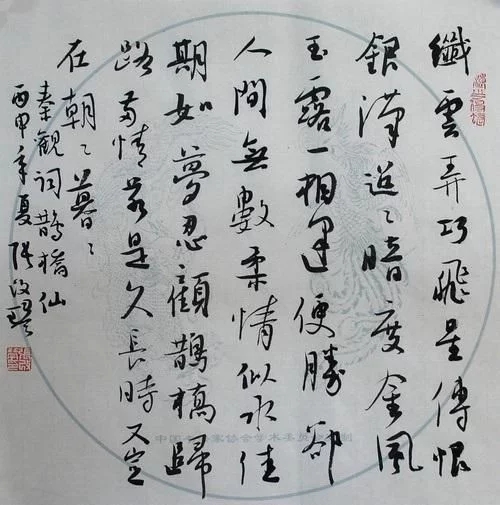 纖雲弄巧飛星傳恨
銀漢迢〻暗度金風
玉露一相逢便勝卻
人間無數柔情似水佳
期如夢忍顧鵲橋歸
路兩情若是久長時又豈
在朝〻暮〻
秦觀詞鵲橋仙
丙申年夏張
中国家协会学术委员会制